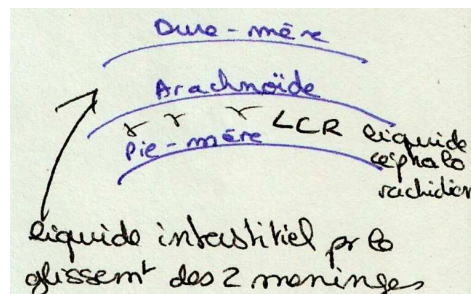 Dure-mère
Arachnoïde
LCR liquide
Pie-mère céphalo
rachidien
liquide interstitiel pr le
glissemt des 2 meninges